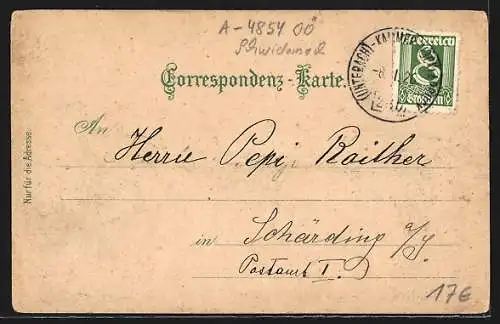 A-4854 OÖ
Correspondenz-Karte.
(UNTERACH)-KAMMER
Österreich
Groschen
An
Herrn Pepi Raither
in Schärding a/I.
Postamt I.
Nur für die Adresse.
17€